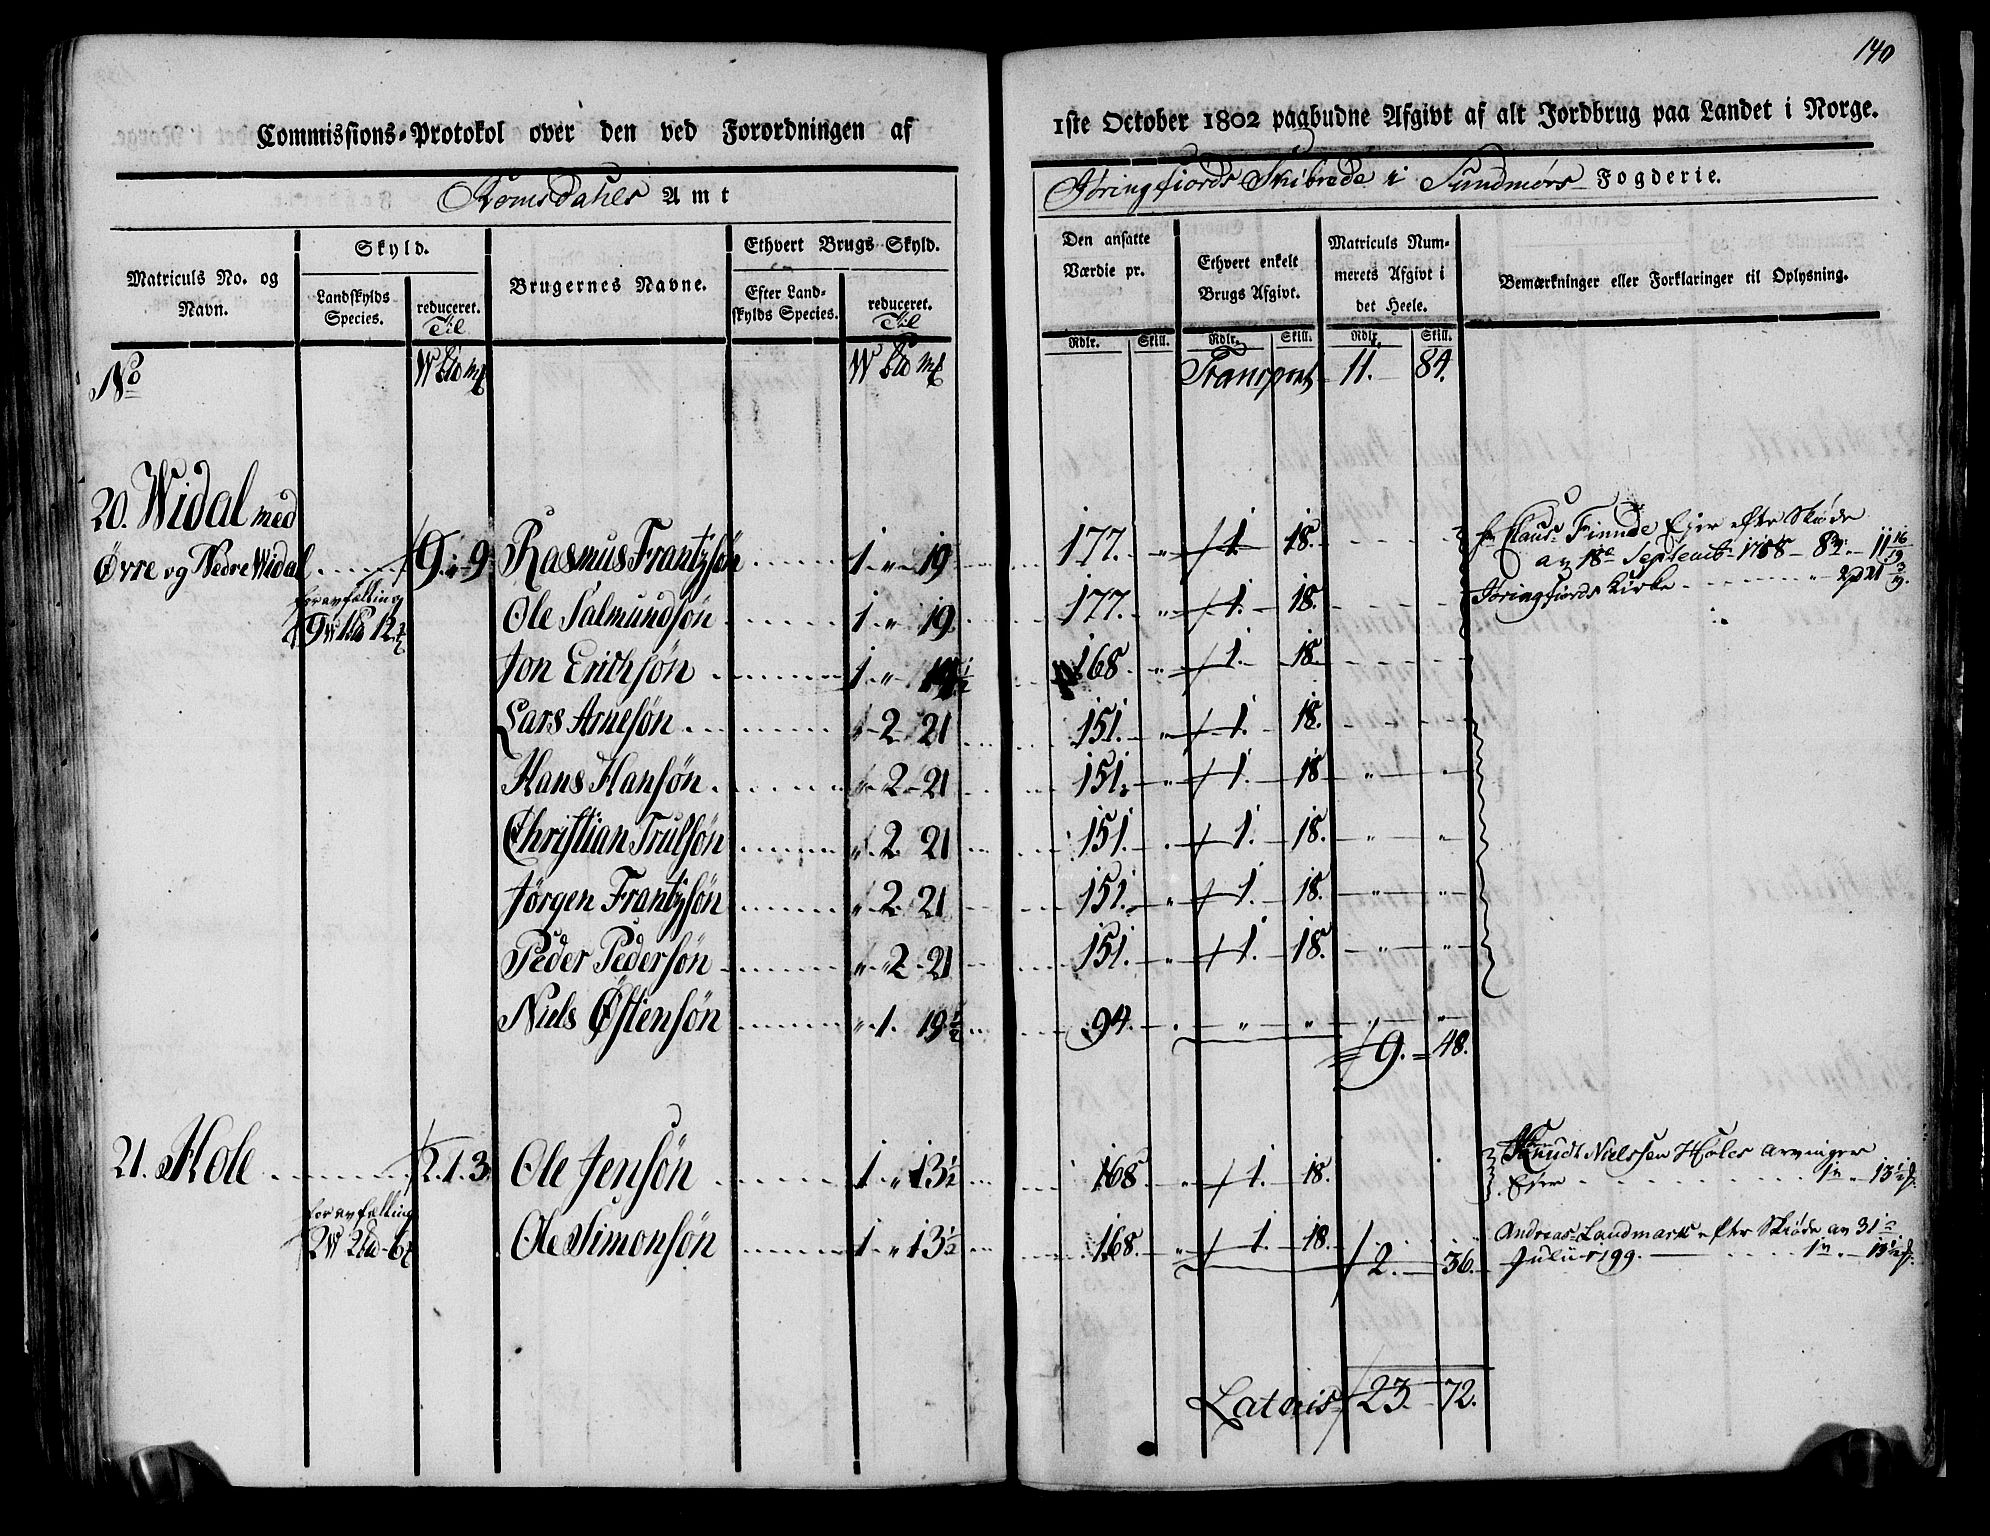 140
Commissions-Protokol over den ved Forordningen af
1ste October 1802 paabudne Afgivt af alt Jordbrug paa Landet i Norge.
Romsdahls Amt
Jöringfiords Skibrede i Sundmörs Fogderie.
Matriculs No. og Navn.
Skyld.
Landskylds Species.
reduceret. Til
Brugernes Navne.
Ethvert Brugs Skyld.
Efter Landskylds Species.
reduceret. Til
Den ansatte Værdie pr.
Ethvert enkelt Brugs Afgivt.
Matriculs Nummerets Afgivt i det Heele.
Bemærkninger eller Forklaringer til Oplysning.
Rdlr. Skill. Rdlr. Skill. Rdlr. Skill.
No W W Transport 11. 84.
20. Widal med
Øvre og Nedre Widal 9 " 9 Rasmus Frantzsön 1 " 19 177. " 1. 18.
Claus Finnde Ejer efter Sköde
av 18de Septembr 1788 11 16/19
Jöringfiords Kirke
for avfælling
Ole Salmundsön 1 " 19 177. " 1. 18.
Jon Erichsön 1 " 168 " 1. 18.
Lars Arnesön " 2 21 151. " 1. 18.
Hans Hansön " 2 21 151. " 1. 18 " "
Christian Trulsön " 2 21 151. " 1. 18. " "
Jörgen Frantzsön " 2 21 151. " 1. 18. " "
Peder Pedersön " 2 21 151. " 1. 18. " "
Niels Östensön " 1. 19 1/2 94. " " " " "
9. 48.
21. Hole 2. 1. 3. Ole Jensön 1 " 13 1/2 168. " 1. 18.
Knudt Nielssen Holes Arvinger
Ejer 1 " 13 1/2
for avfælling
Ole Simonsön 1 " 13 1/2 168. " 1. 18. 2. 36.
Andreas Landmark efter Skiöde av 31te
Julii 1799. 1 " 13 1/2
Lateris 23. 72.